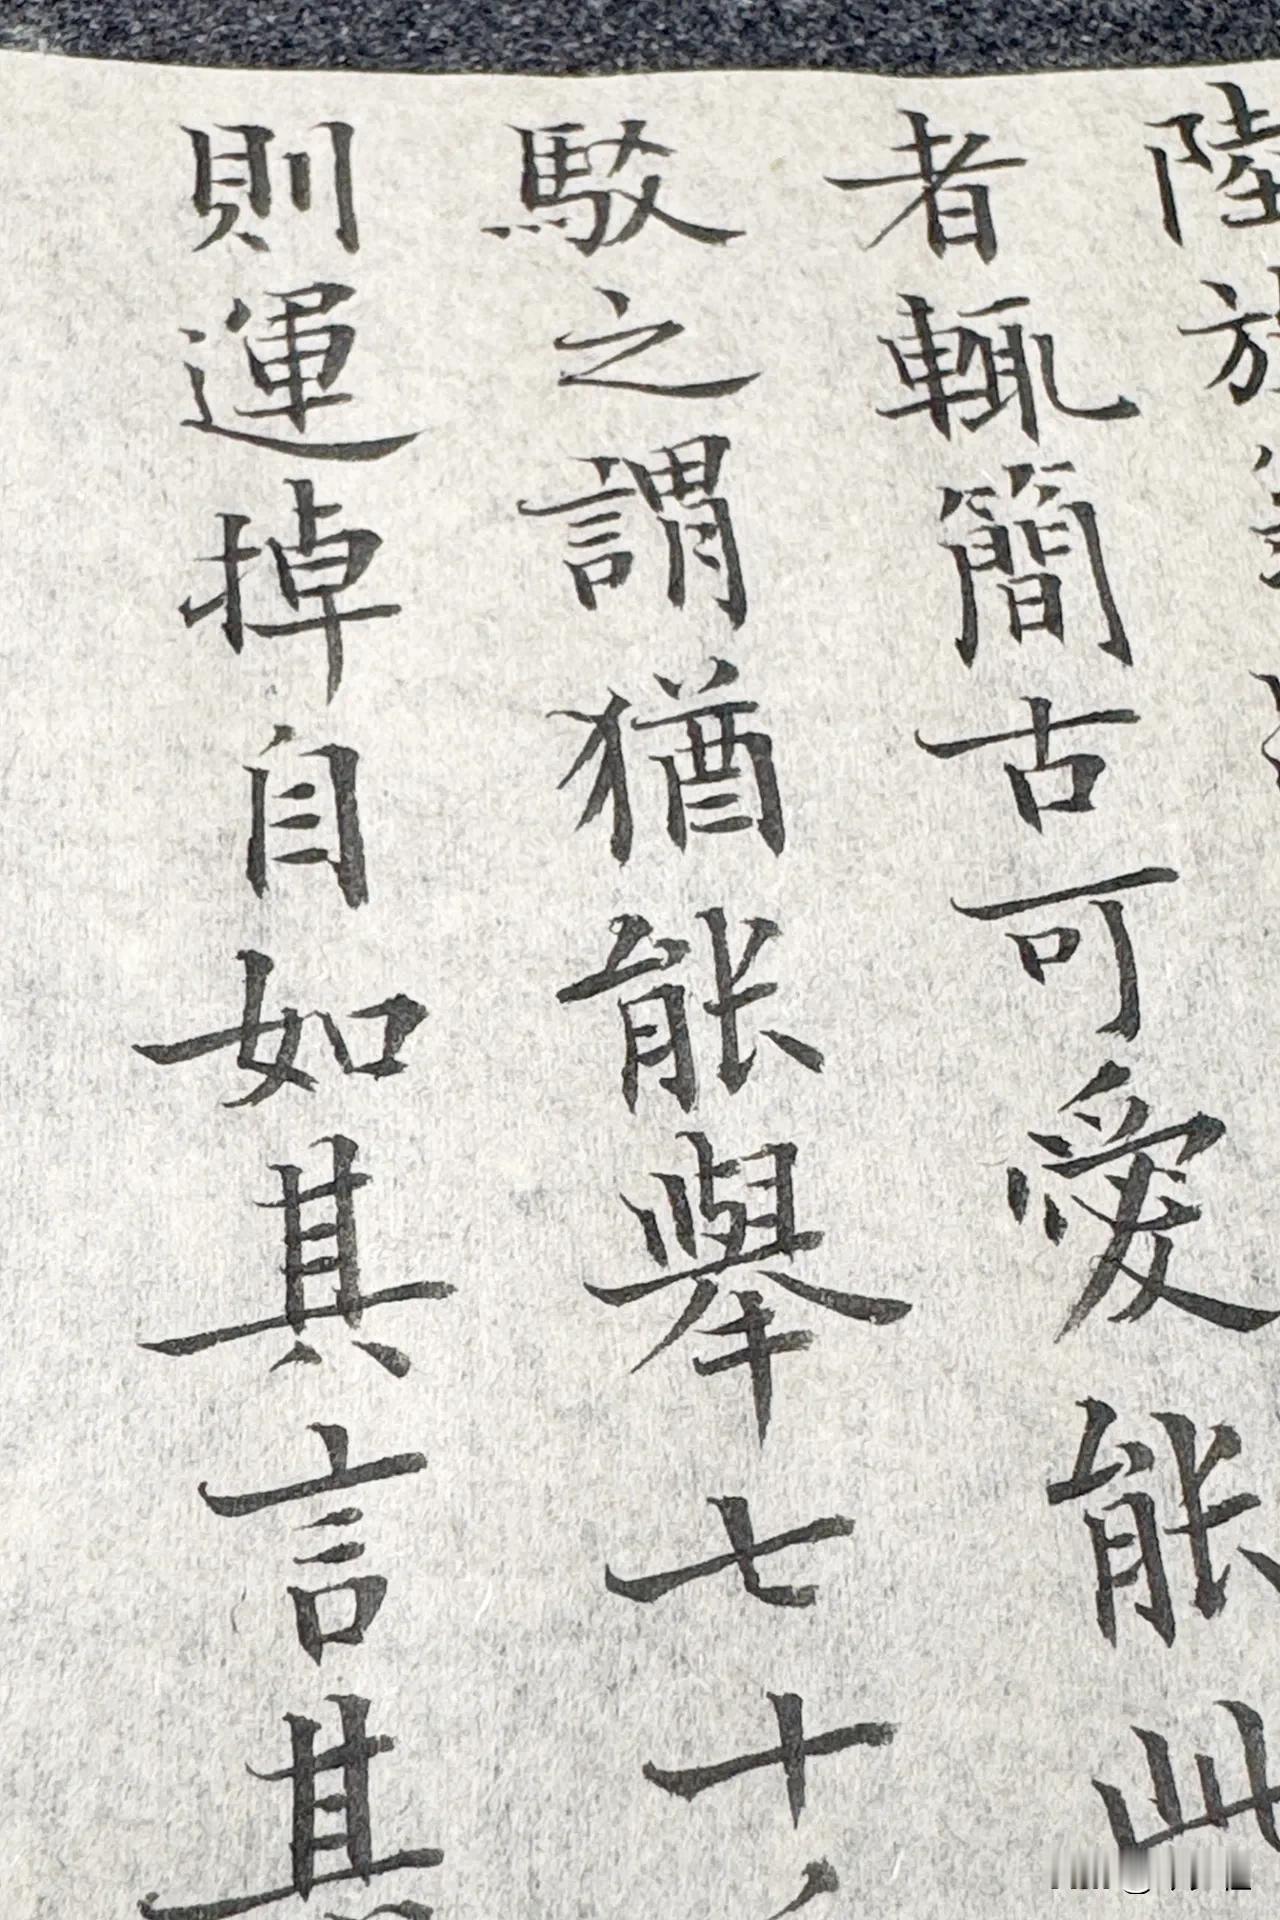 陸放
者輒簡古可愛能此
駁之謂猶能舉七十
則運掉自如其言其